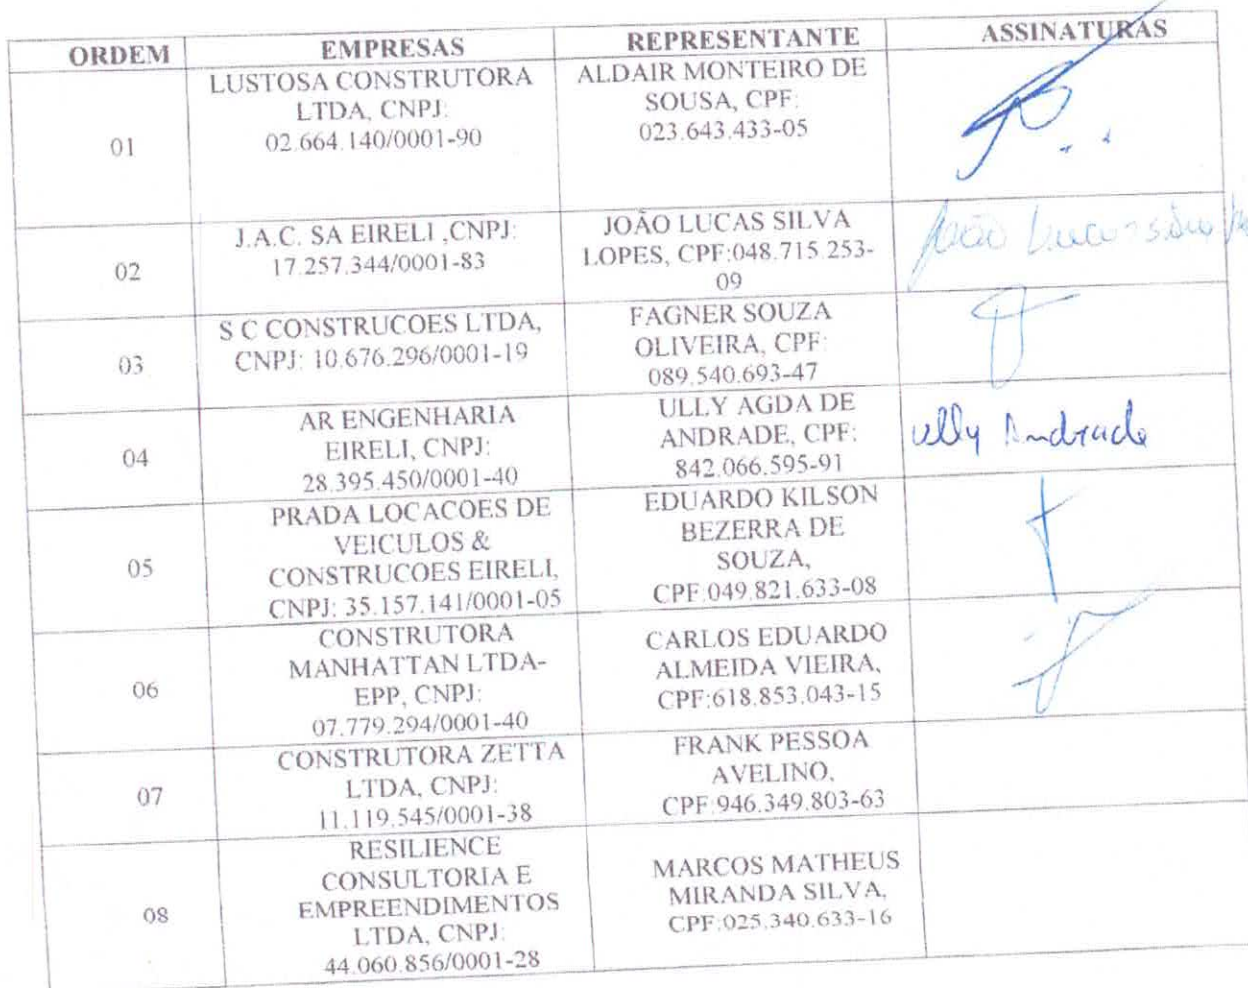 ORDEM EMPRESAS REPRESENTANTE ASSINATURAS
01
LUSTOSA CONSTRUTORA
LTDA, CNPJ:
02.664.140/0001-90
ALDAIR MONTEIRO DE
SOUSA, CPF:
023.643.433-05
02
J.A.C. SA EIRELI ,CNPJ:
17.257.344/0001-83
JOÃO LUCAS SILVA
LOPES, CPF:048.715.253-
09
João Lucas Silva
03
S C CONSTRUCOES LTDA,
CNPJ: 10.676.296/0001-19
FAGNER SOUZA
OLIVEIRA, CPF:
089.540.693-47
04
AR ENGENHARIA
EIRELI, CNPJ:
28.395.450/0001-40
ULLY AGDA DE
ANDRADE, CPF:
842.066.595-91
Ully Andrade
05
PRADA LOCACOES DE
VEICULOS &
CONSTRUCOES EIRELI,
CNPJ: 35.157.141/0001-05
EDUARDO KILSON
BEZERRA DE
SOUZA,
CPF:049.821.633-08
06
CONSTRUTORA
MANHATTAN LTDA-
EPP, CNPJ:
07.779.294/0001-40
CARLOS EDUARDO
ALMEIDA VIEIRA,
CPF:618.853.043-15
07
CONSTRUTORA ZETTA
LTDA, CNPJ:
11.119.545/0001-38
FRANK PESSOA
AVELINO,
CPF:946.349.803-63
08
RESILIENCE
CONSULTORIA E
EMPREENDIMENTOS
LTDA, CNPJ:
44.060.856/0001-28
MARCOS MATHEUS
MIRANDA SILVA,
CPF:025.340.633-16